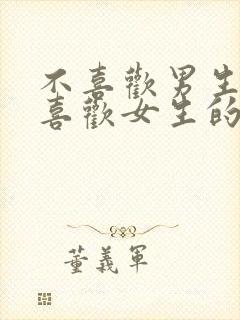 不喜歡男生
喜歡女生的
董義軍